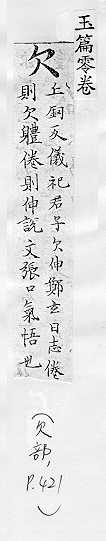 玉篇零卷
欠
丘釼反儀礼君子欠伸鄭玄曰志倦
則欠軆倦則伸說文張口氣悟也
(欠部, P.421)